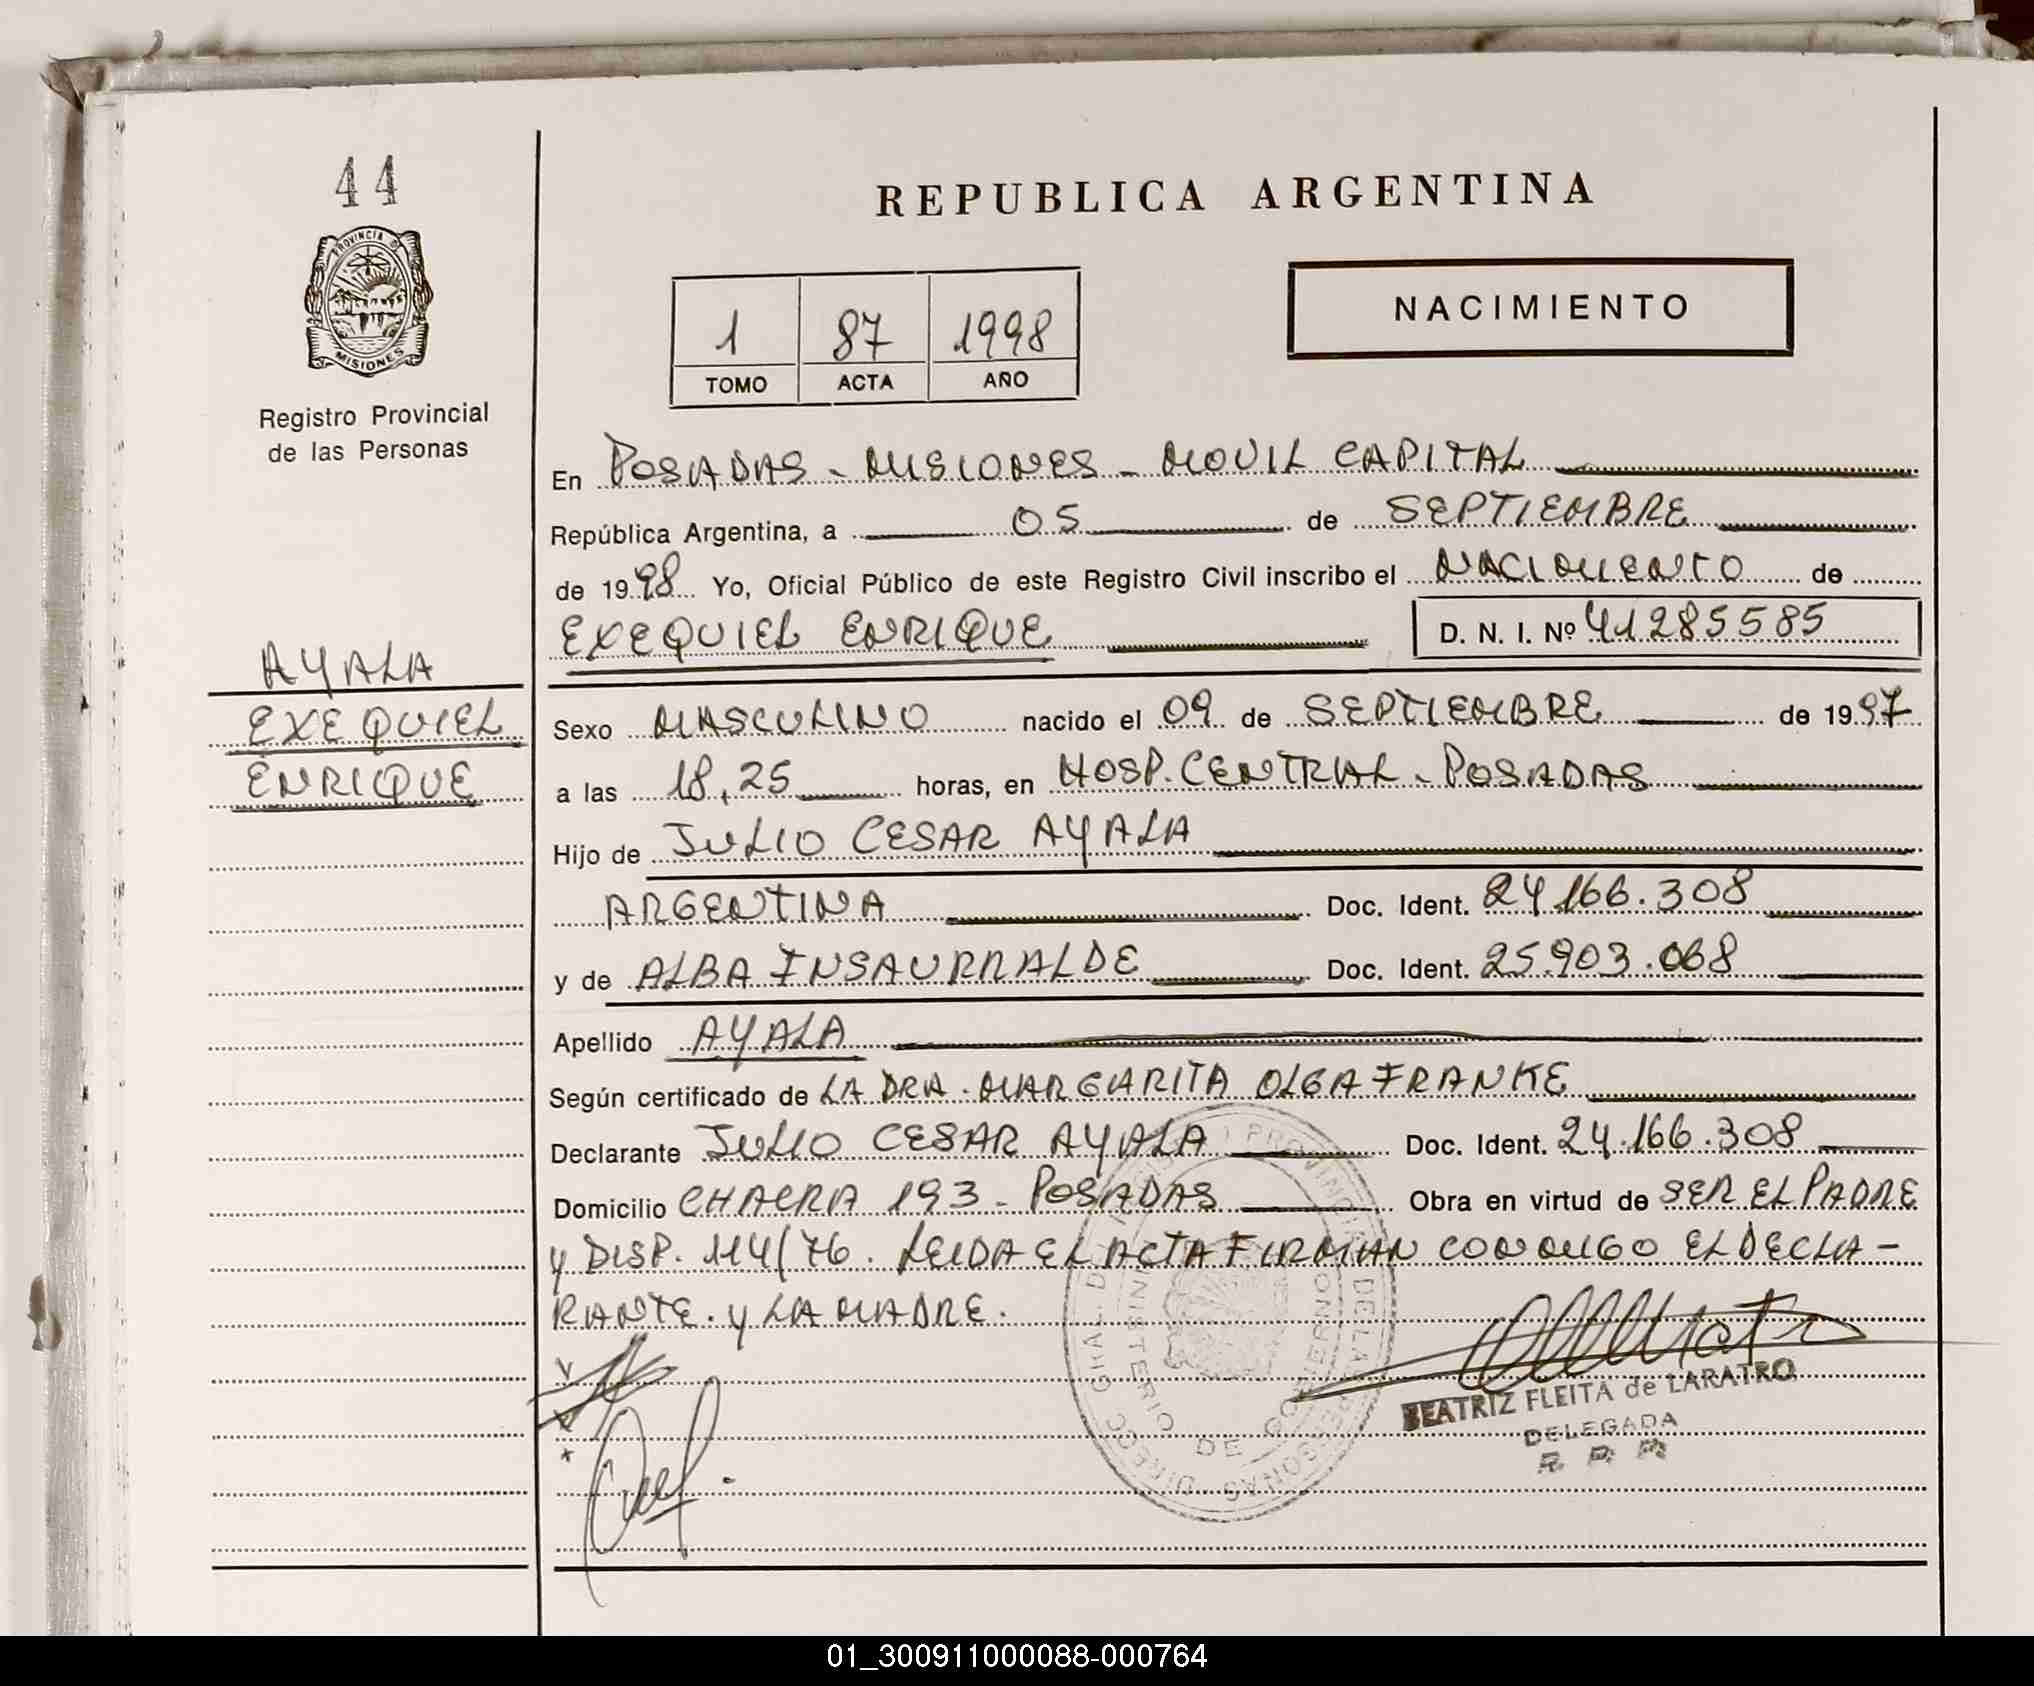 44
PROVINCIA DE
MISIONES
Registro Provincial
de las Personas
AYALA
EXEQUIEL
ENRIQUE
REPUBLICA ARGENTINA
1 87 1998
TOMO ACTA AÑO
NACIMIENTO
En POSADAS - MISIONES - MOVIL CAPITAL
República Argentina, a 05 de SEPTIEMBRE
de 1998 Yo, Oficial Público de este Registro Civil inscribo el NACIMIENTO de
EXEQUIEL ENRIQUE D. N. I. Nº 41285585
Sexo MASCULINO nacido el 09 de SEPTIEMBRE de 1997
a las 18,25 horas, en HOSP. CENTRAL - POSADAS
Hijo de JULIO CESAR AYALA
ARGENTINA Doc. Ident. 24.166.308
y de ALBA INSAURRALDE Doc. Ident. 25.903.068
Apellido AYALA
Según certificado de LA DRA. MARGARITA OLGA FRANKE
Declarante JULIO CESAR AYALA Doc. Ident. 24.166.308
Domicilio CHACRA 193 - POSADAS Obra en virtud de SER EL PADRE
y DISP. 114/76. LEIDA EL ACTA FIRMAN CONMIGO EL DECLA-
RANTE. y LA MADRE.
DIRECC GRAL. DEL REGISTRO PROVINCIAL DE LAS PERSONAS
MINISTERIO DE GOBIERNO
BEATRIZ FLEITA de LARATRO
DELEGADA
R. P. P.
01_300911000088-000764